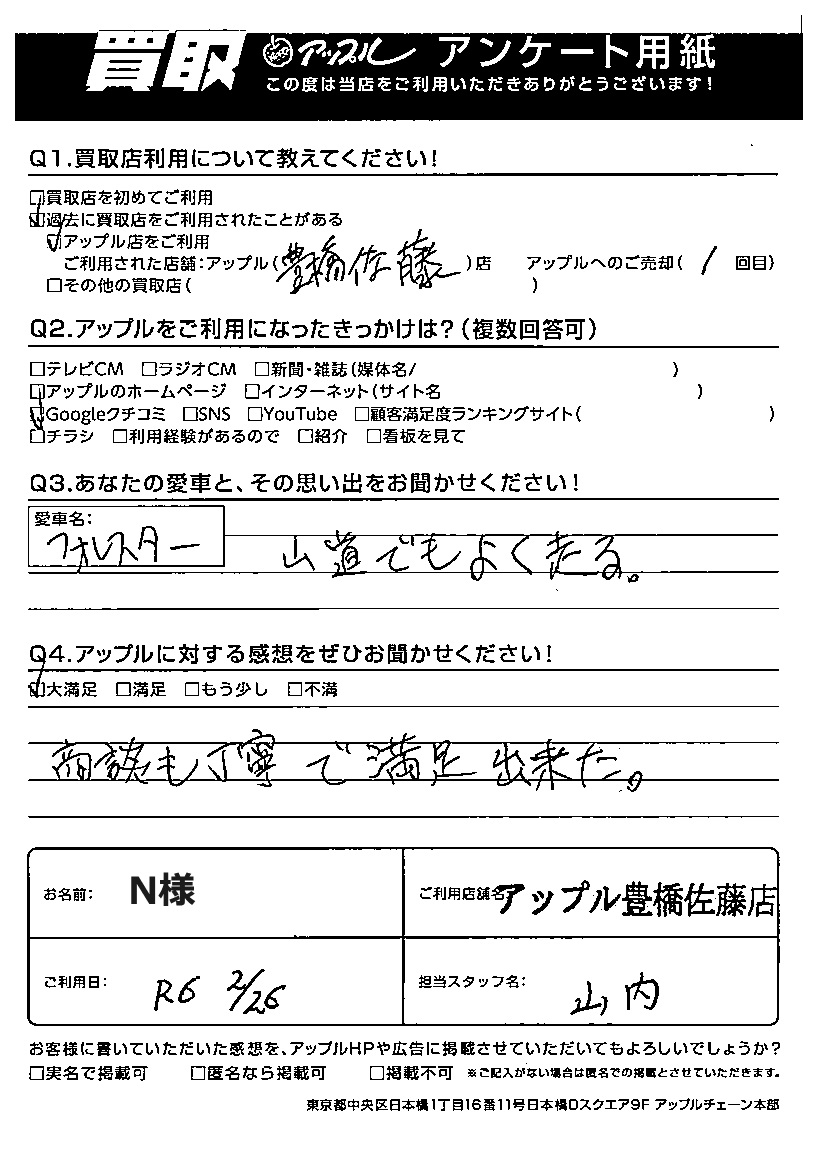 買取 アップル アンケート用紙
この度は当店をご利用いただきありがとうございます!
Q1.買取店利用について教えてください!
□買取店を初めてご利用
☑過去に買取店をご利用されたことがある
☑アップル店をご利用
ご利用された店舗:アップル(豊橋佐藤)店 アップルへのご売却(1回目)
□その他の買取店( )
Q2.アップルをご利用になったきっかけは?(複数回答可)
□テレビCM □ラジオCM □新聞・雑誌(媒体名/ )
□アップルのホームページ □インターネット(サイト名 )
☑Googleクチコミ □SNS □YouTube □顧客満足度ランキングサイト( )
□チラシ □利用経験があるので □紹介 □看板を見て
Q3.あなたの愛車と、その思い出をお聞かせください!
愛車名:
フォレスター 山道でもよく走る。
Q4.アップルに対する感想をぜひお聞かせください!
☑大満足 □満足 □もう少し □不満
商談も丁寧で満足出来た。
お名前: N様 ご利用店舗名 アップル豊橋佐藤店
ご利用日: R6 2/26 担当スタッフ名: 山内
お客様に書いていただいた感想を、アップルHPや広告に掲載させていただいてもよろしいでしょうか?
□実名で掲載可 □匿名なら掲載可 □掲載不可 ※ご記入がない場合は匿名での掲載とさせていただきます。
東京都中央区日本橋1丁目16番11号日本橋Dスクエア9F アップルチェーン本部